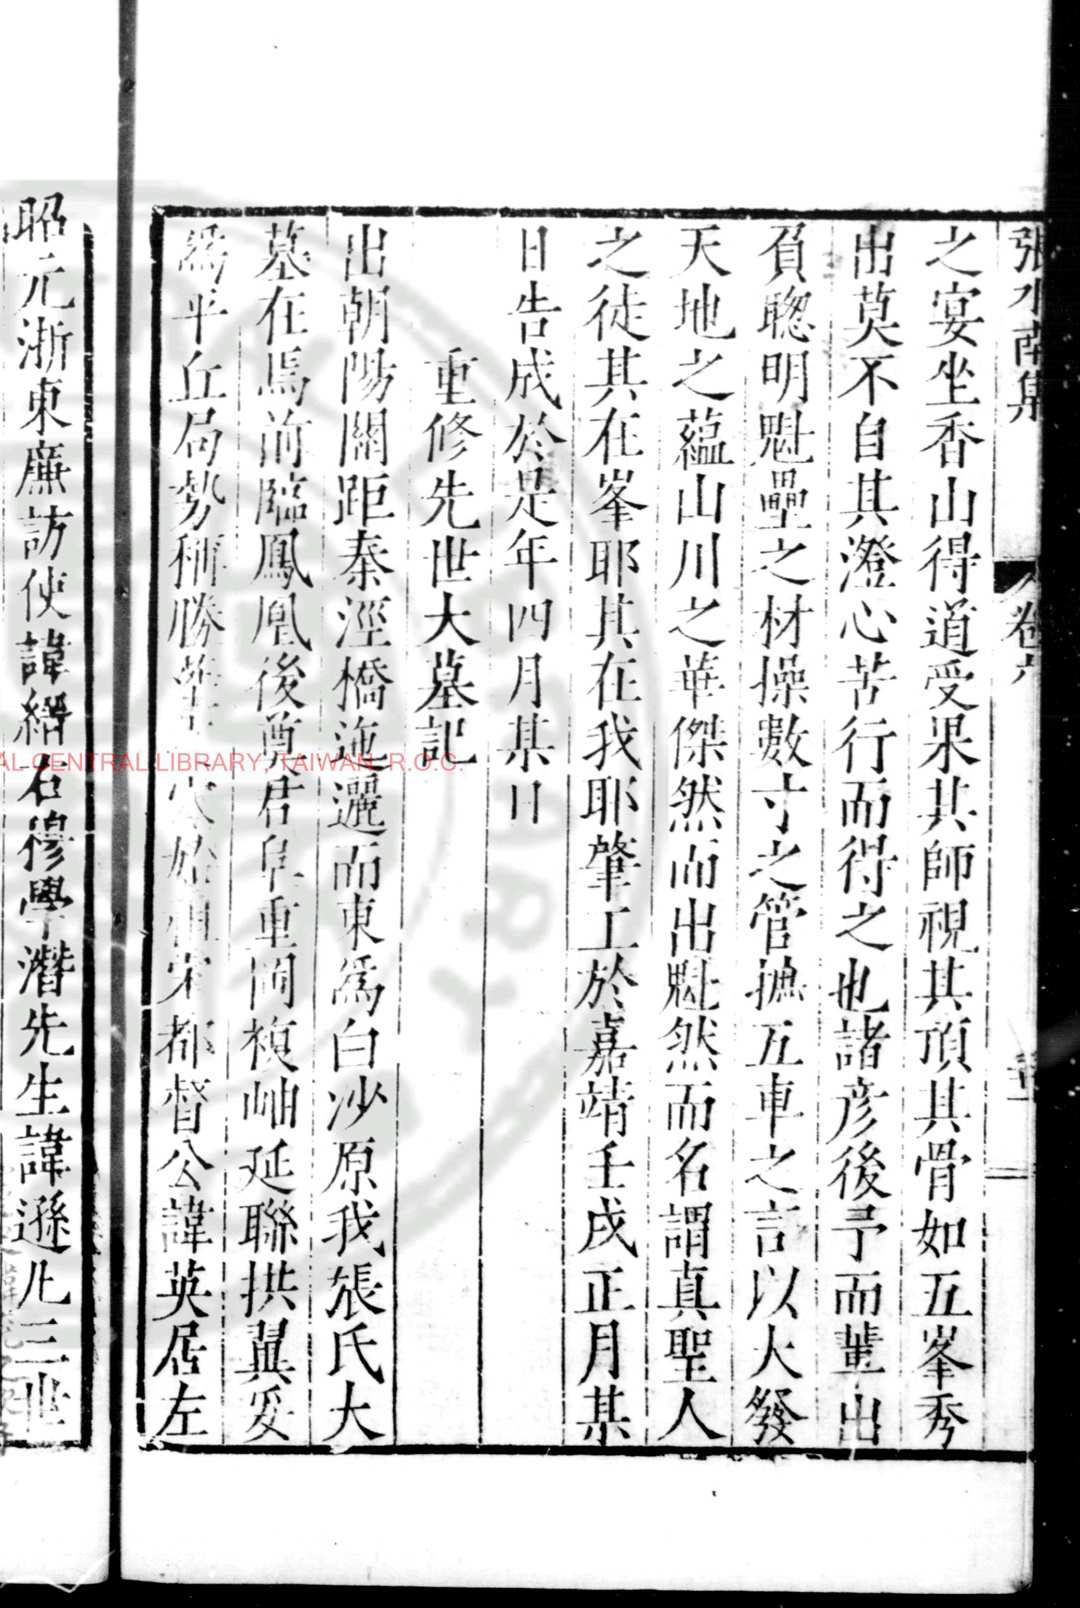 張水南集 卷六
之宴坐香山得道受果其師視其頂其骨如五峯秀
出莫不自其澄心苦行而得之也諸彦後予而輩出
負聦明魁壘之材操數寸之管摭五車之言以大發
天地之蘊山川之華傑然而出魁然而名謂真聖人
之徒其在峯耶其在我耶肇工於嘉靖壬戌正月某
日告成於是年四月某日
重修先世大墓記
出朝陽關距秦涇橋迤邐而東為白沙原我張氏大
墓在焉前臨鳳凰後奠君阜重岡複岫延聯拱翼妥
為平丘局勢稱勝 始祖宋都督公諱英居左
昭元浙東廉訪使諱縉右穆學潛先生諱遜凡三世
NATIONAL CENTRAL LIBRARY, TAIWAN, R.O.C.